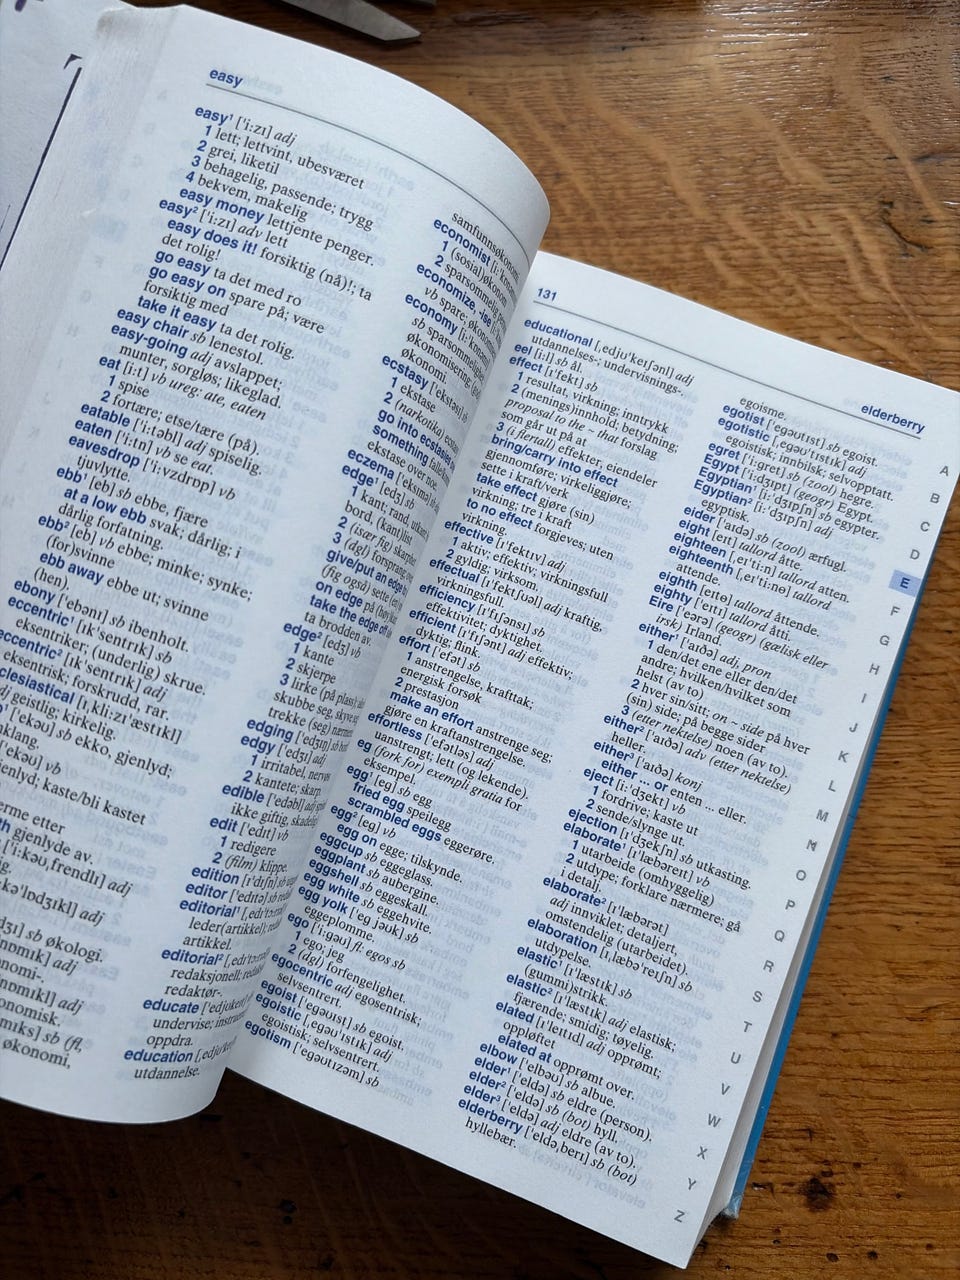 easy
easy¹ ['i:zɪ] adj
1 lett; lettvint, ubesværet
2 grei, liketil
3 behagelig, passende; trygg
4 bekvem, makelig
easy money lettjente penger.
easy² ['i:zɪ] adv lett
easy does it! forsiktig (nå)!; ta
det rolig!
go easy ta det med ro
go easy on spare på; være
forsiktig med
take it easy ta det rolig.
easy chair sb lenestol.
easy-going adj avslappet;
munter, sorgløs; likeglad.
eat [i:t] vb ureg: ate, eaten
1 spise
2 fortære; etse/tære (på).
eatable ['i:təbl] adj spiselig.
eaten ['i:tn] vb se eat.
eavesdrop ['i:vzdrɒp] vb
tjuvlytte.
ebb¹ [eb] sb ebbe, fjære
at a low ebb svak; dårlig; i
dårlig forfatning.
ebb² [eb] vb ebbe; minke; synke;
(for)svinne
ebb away ebbe ut; svinne
(hen).
ebony ['ebənɪ] sb ibenholt.
eccentric¹ [ɪk'sentrɪk] sb
eksentriker, (underlig) skrue.
eccentric² [ɪk'sentrɪk] adj
eksentrisk; forskrudd, rar.
geistlig; kirkelig.
['ekəʊ] sb ekko, gjenlyd;
['ekəʊ] vb
kaste/bli kastet
etter
gjenlyde av.
adj
sb økologi.
adj
adj
sb (fl,
økonomi,
samfunnsøkonomi
economist
1 (sosial)økonom
2 sparsommelig
economize, -ise
vb spare; 
economy
sb sparsommelighet
økonomisering
økonomi.
ecstasy ['ekstəsɪ]
1 ekstase
2 (narkotika)
go into ecstasies
something
ekstase over noe
eczema
edge¹ [edʒ] sb
1 kant; rand,
bord, (kant)list
2 (især fig)
3 (dgl) forsprang
give/put an edge
(fig også) sette
on edge på
take the edge off
ta brodden av.
edge² [edʒ] vb
1 kante
2 skjerpe
3 lirke (på plass)
skubbe seg,
trekke (seg)
edging ['edʒɪŋ] sb
edgy ['edʒɪ] adj
1 irritabel, nervøs
2 kantete; skarp
edible ['edəbl] adj
ikke giftig,
edit ['edɪt] vb
1 redigere
2 (film) klippe.
edition [ɪ'dɪʃn] sb
editor ['edɪtə] sb
editorial¹
leder(artikkel);
artikkel.
editorial²
redaksjonell;
redaktør-.
educate
undervise;
oppdra.
education
utdannelse.
131
elderberry
educational [ˌedjʊ'keɪʃənl] adj
utdannelses-; undervisnings-.
eel [i:l] sb ål.
effect [ɪ'fekt] sb
1 resultat, virkning; inntrykk
2 (menings)innhold, betydning;
proposal to the ~ that forslag
som går ut på at
3 (i flertall) effekter, eiendeler
bring/carry into effect
gjennomføre; virkeliggjøre;
sette i kraft/verk
take effect gjøre (sin)
virkning; tre i kraft
to no effect forgjeves; uten
virkning.
effective [ɪ'fektɪv] adj
1 aktiv; effektiv; virkningsfull
2 gyldig; virksom.
effectual [ɪ'fektʃʊəl] adj kraftig,
virkningsfull.
efficiency [ɪ'fɪʃənsɪ] sb
effektivitet; dyktighet.
efficient [ɪ'fɪʃənt] adj effektiv;
dyktig, flink.
effort ['efət] sb
1 anstrengelse, krafttak;
energisk forsøk
2 prestasjon
make an effort anstrenge seg;
gjøre en kraftanstrengelse.
effortless ['efətləs] adj
uanstrengt; lett (og lekende).
eg (fork for) exempli gratia for
eksempel.
egg¹ [eg] sb egg
fried egg speilegg
scrambled eggs eggerøre.
egg² [eg] vb
egg on egge; tilskynde.
eggcup sb eggeglass.
eggplant sb aubergine.
eggshell sb eggeskall.
egg white sb eggehvite.
egg yolk ['eg jəʊk] sb
eggeplomme.
ego ['i:gəʊ] fl. egos sb
1 ego; jeg
2 (dgl) forfengelighet.
egocentric adj egosentrisk,
selvsentrert.
egoist ['egəʊɪst] sb egoist.
egoistic [ˌegəʊ'ɪstɪk] adj
egoistisk; selvsentrert.
egotism ['egəʊtɪzəm] sb
egoisme.
egotist ['egəʊtɪst] sb egoist.
egotistic [ˌegəʊ'tɪstɪk] adj
egoistisk; innbilsk; selvopptatt.
egret ['i:gret] sb (zool) hegre.
Egypt ['i:dʒɪpt] (geogr) Egypt.
Egyptian¹ [i:'dʒɪpʃn] sb egypter.
Egyptian² [i:'dʒɪpʃn] adj
egyptisk.
eider ['aɪdə] sb (zool) ærfugl.
eight [eɪt] tallord åtte.
eighteen [ˌeɪ'ti:n] tallord atten.
eighteenth [ˌeɪ'ti:nθ] tallord
attende.
eighth [eɪtθ] tallord åttende.
eighty ['eɪtɪ] tallord åtti.
Eire ['eərə] (geogr) (gælisk eller
irsk) Irland
either¹ ['aɪðə] adj, pron
1 den/det ene eller den/det
andre; hvilken/hvilket som
helst (av to)
2 hver sin/sitt; on ~ side på hver
(sin) side; på begge sider
3 (etter nektelse) noen (av to).
either² ['aɪðə] adv (etter nektelse)
heller.
either³ ['aɪðə] konj
either ... or enten ... eller.
eject [i:'dʒekt] vb
1 fordrive; kaste ut
2 sende/slynge ut.
ejection [ɪ'dʒekʃn] sb utkasting.
elaborate¹ [ɪ'læbəreɪt] vb
1 utarbeide (omhyggelig)
2 utdype; forklare nærmere; gå
i detalj.
elaborate² [ɪ'læbərət]
adj innviklet; detaljert,
omstendelig (utarbeidet).
elaboration [ɪˌlæbə'reɪʃn] sb
utdypelse.
elastic¹ [ɪ'læstɪk] sb
(gummi)strikk.
elastic² [ɪ'læstɪk] adj elastisk;
fjærende; smidig; tøyelig.
elated [ɪ'leɪtɪd] adj opprømt;
oppløftet
elated at opprømt over.
elbow ['elbəʊ] sb albue.
elder¹ ['eldə] sb eldre (person).
elder² ['eldə] sb (bot) hyll.
elder³ ['eldə] adj eldre (av to).
elderberry ['eldəˌberɪ] sb (bot)
hyllebær.
A
B
C
D
E
F
G
H
I
J
K
L
M
N
O
P
Q
R
S
T
U
V
W
X
Y
Z